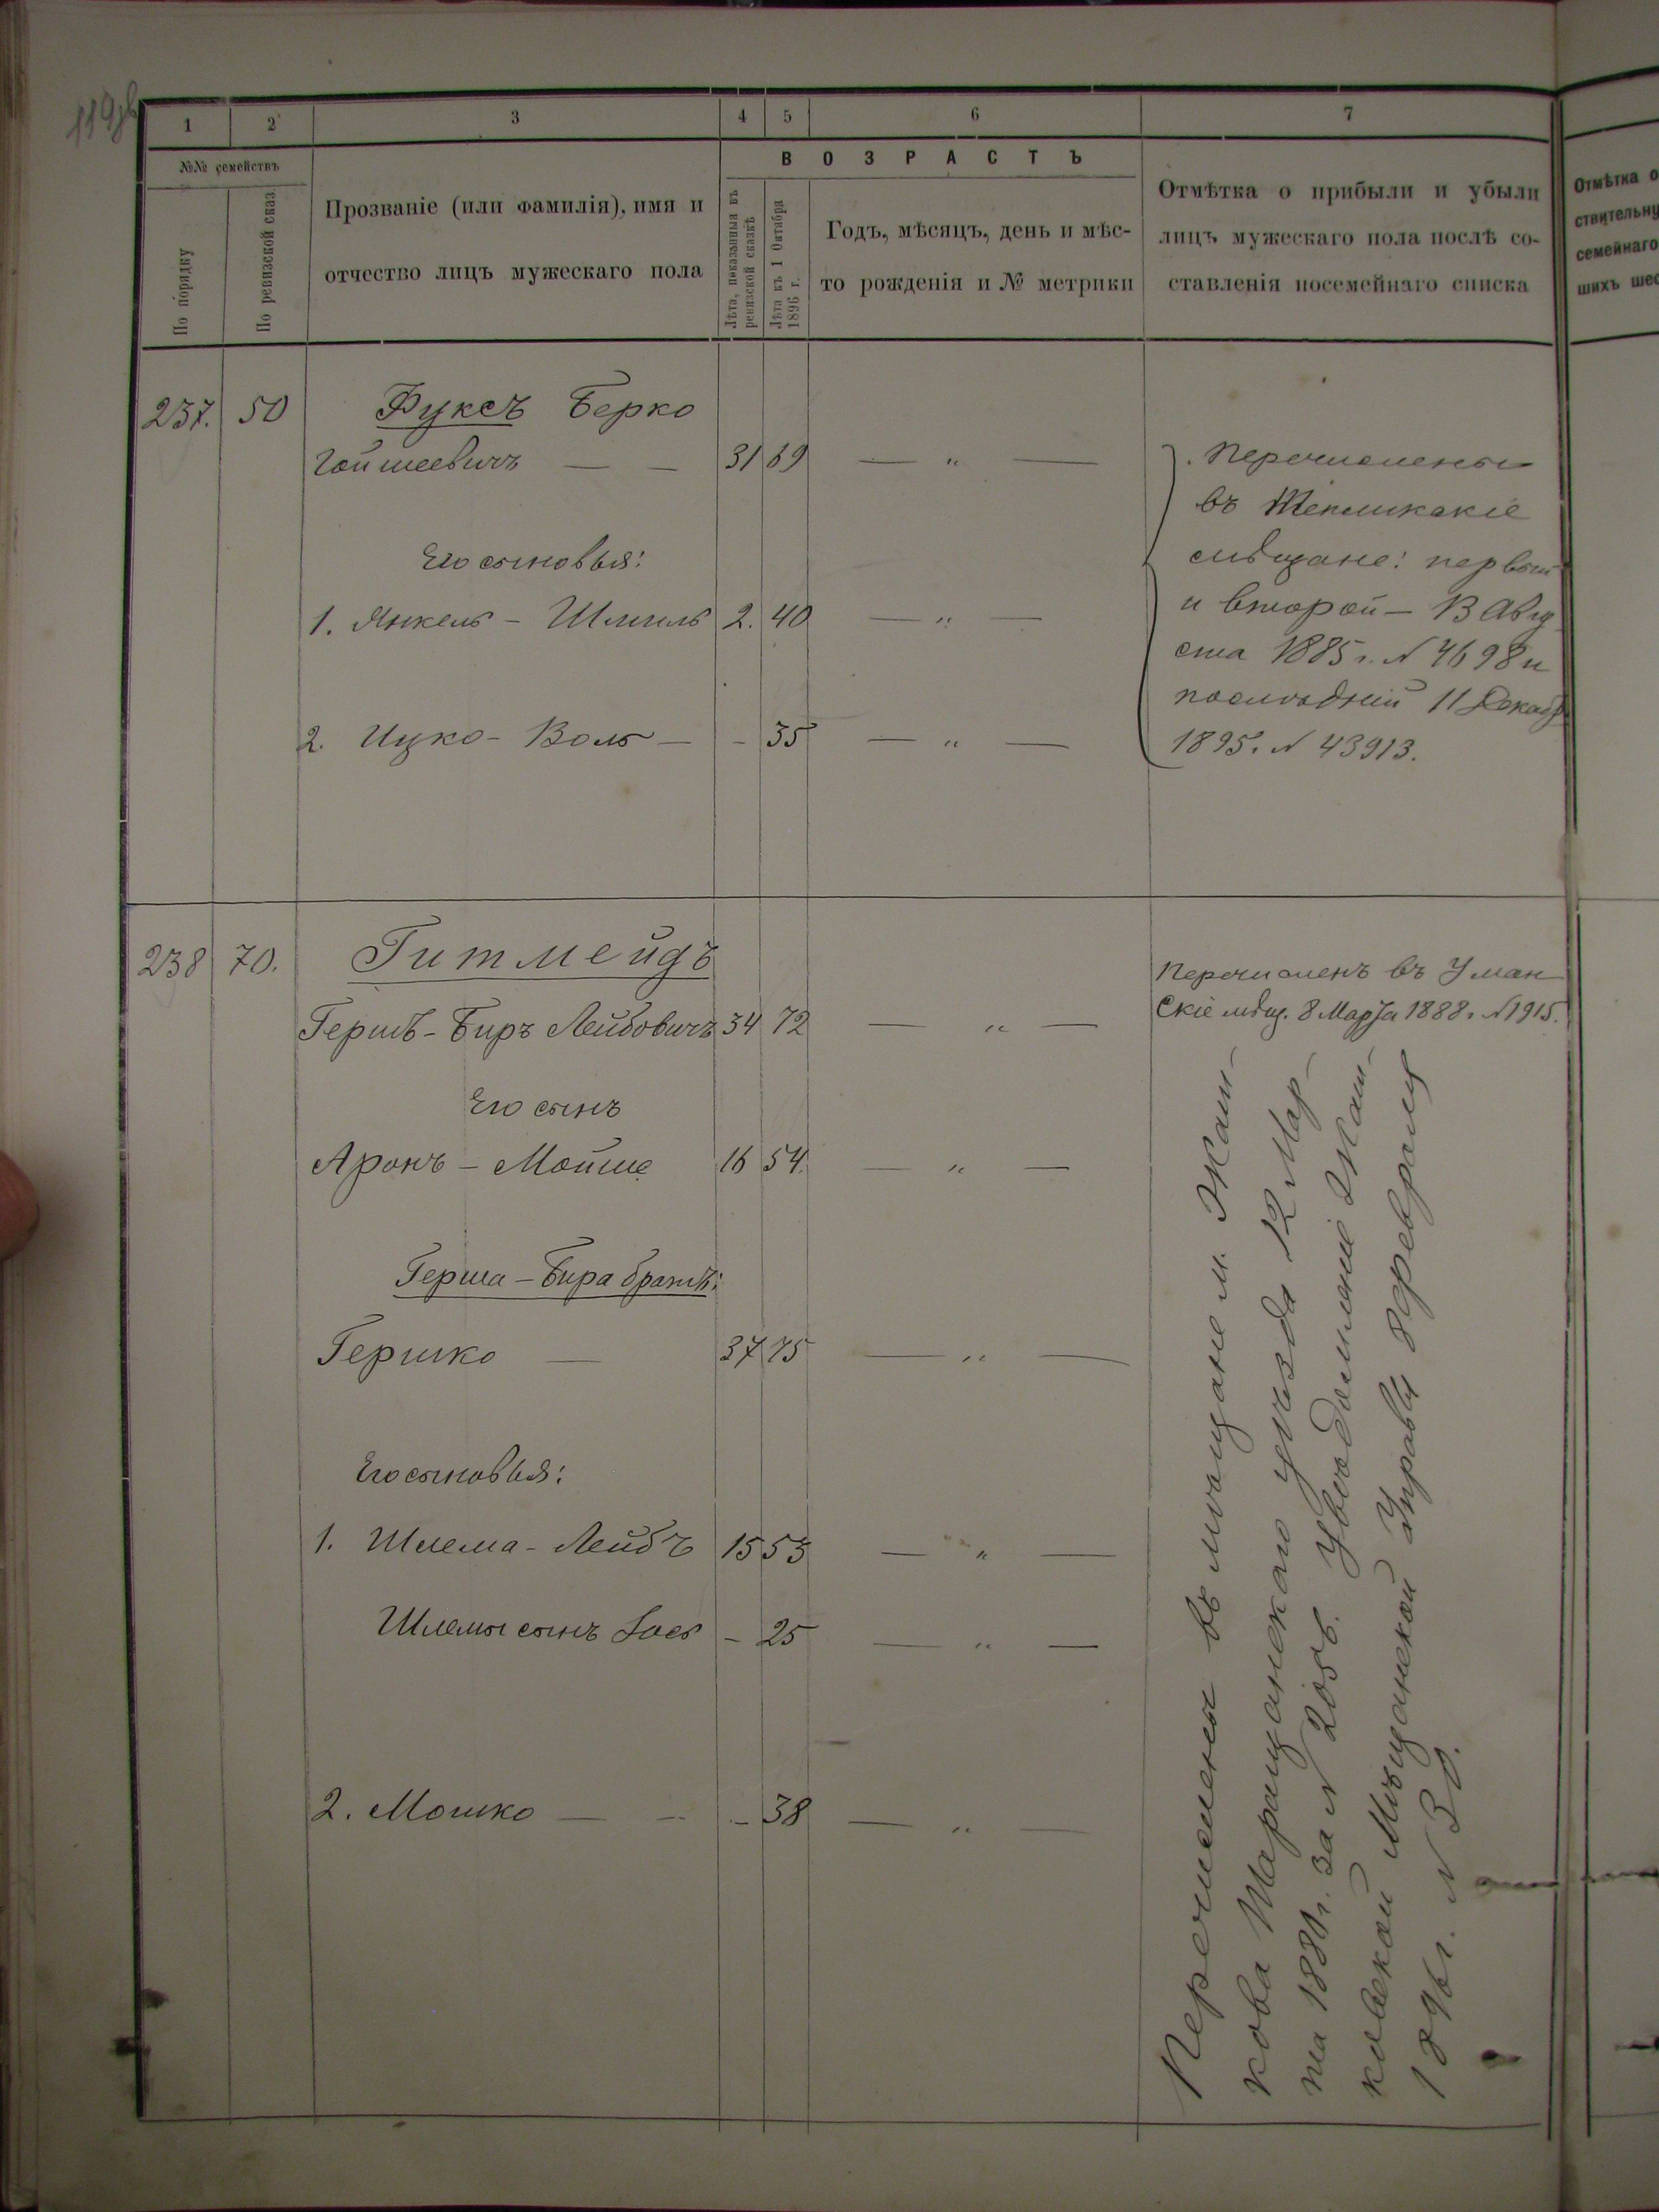 119об
1 2 3 4 5 6 7
№№ семействъ
По порядку
По ревизской сказ
Прозваніе (или фамилія), имя и
отчество лицъ мужескаго пола
ВОЗРАСТЪ
Лѣта, показанныя въ
ревизской сказкѣ
Лѣта къ 1 Октября
1896 г.
Годъ, мѣсяцъ, день и мѣс-
то рожденія и № метрики
Отмѣтка о прибыли и убыли
лицъ мужескаго пола послѣ со-
ставленія посемейнаго списка
Отмѣтка о
ствительну
семейнаго
шихъ шес
237. 50 Фуксъ Берко
31 69 — " —
Его сыновья:
1. Янкель - Шмиль 2. 40 — " —
2. Ицко - Воль — - 35 — " —
Перечислены
въ Тепликскіе
мѣщане: первый
и второй — 13 Авгу
ста 1885 г. N 4698 и
послѣдній 11 Декабр
1895. N 43913.
238 70. Гитмейдъ
Гершъ - Биръ Лейбовичъ 34 72 — " —
Его сынъ
Аронъ - Мойше 16 54. — " —
Герша - Бира братъ:
Гершко — 37 75 — " —
Его сыновья:
1. Шлема - Лейбъ 15 53 — " —
Шлемы сынъ Іось - 25 — " —
2. Мошко — - 38 — " —
Перечисленъ въ Уман
скіе мѣщ. 8 Марта 1888 г. N 1915.
Перечислены въ мѣщане м. Жаш-
кова Таращанскаго уѣзда 12 Мар-
та 1880 г. за N 2056. Увѣдомленіе Жаш-
ковской Мѣщанской Управы 8 Февраля
1896 г. N 30.